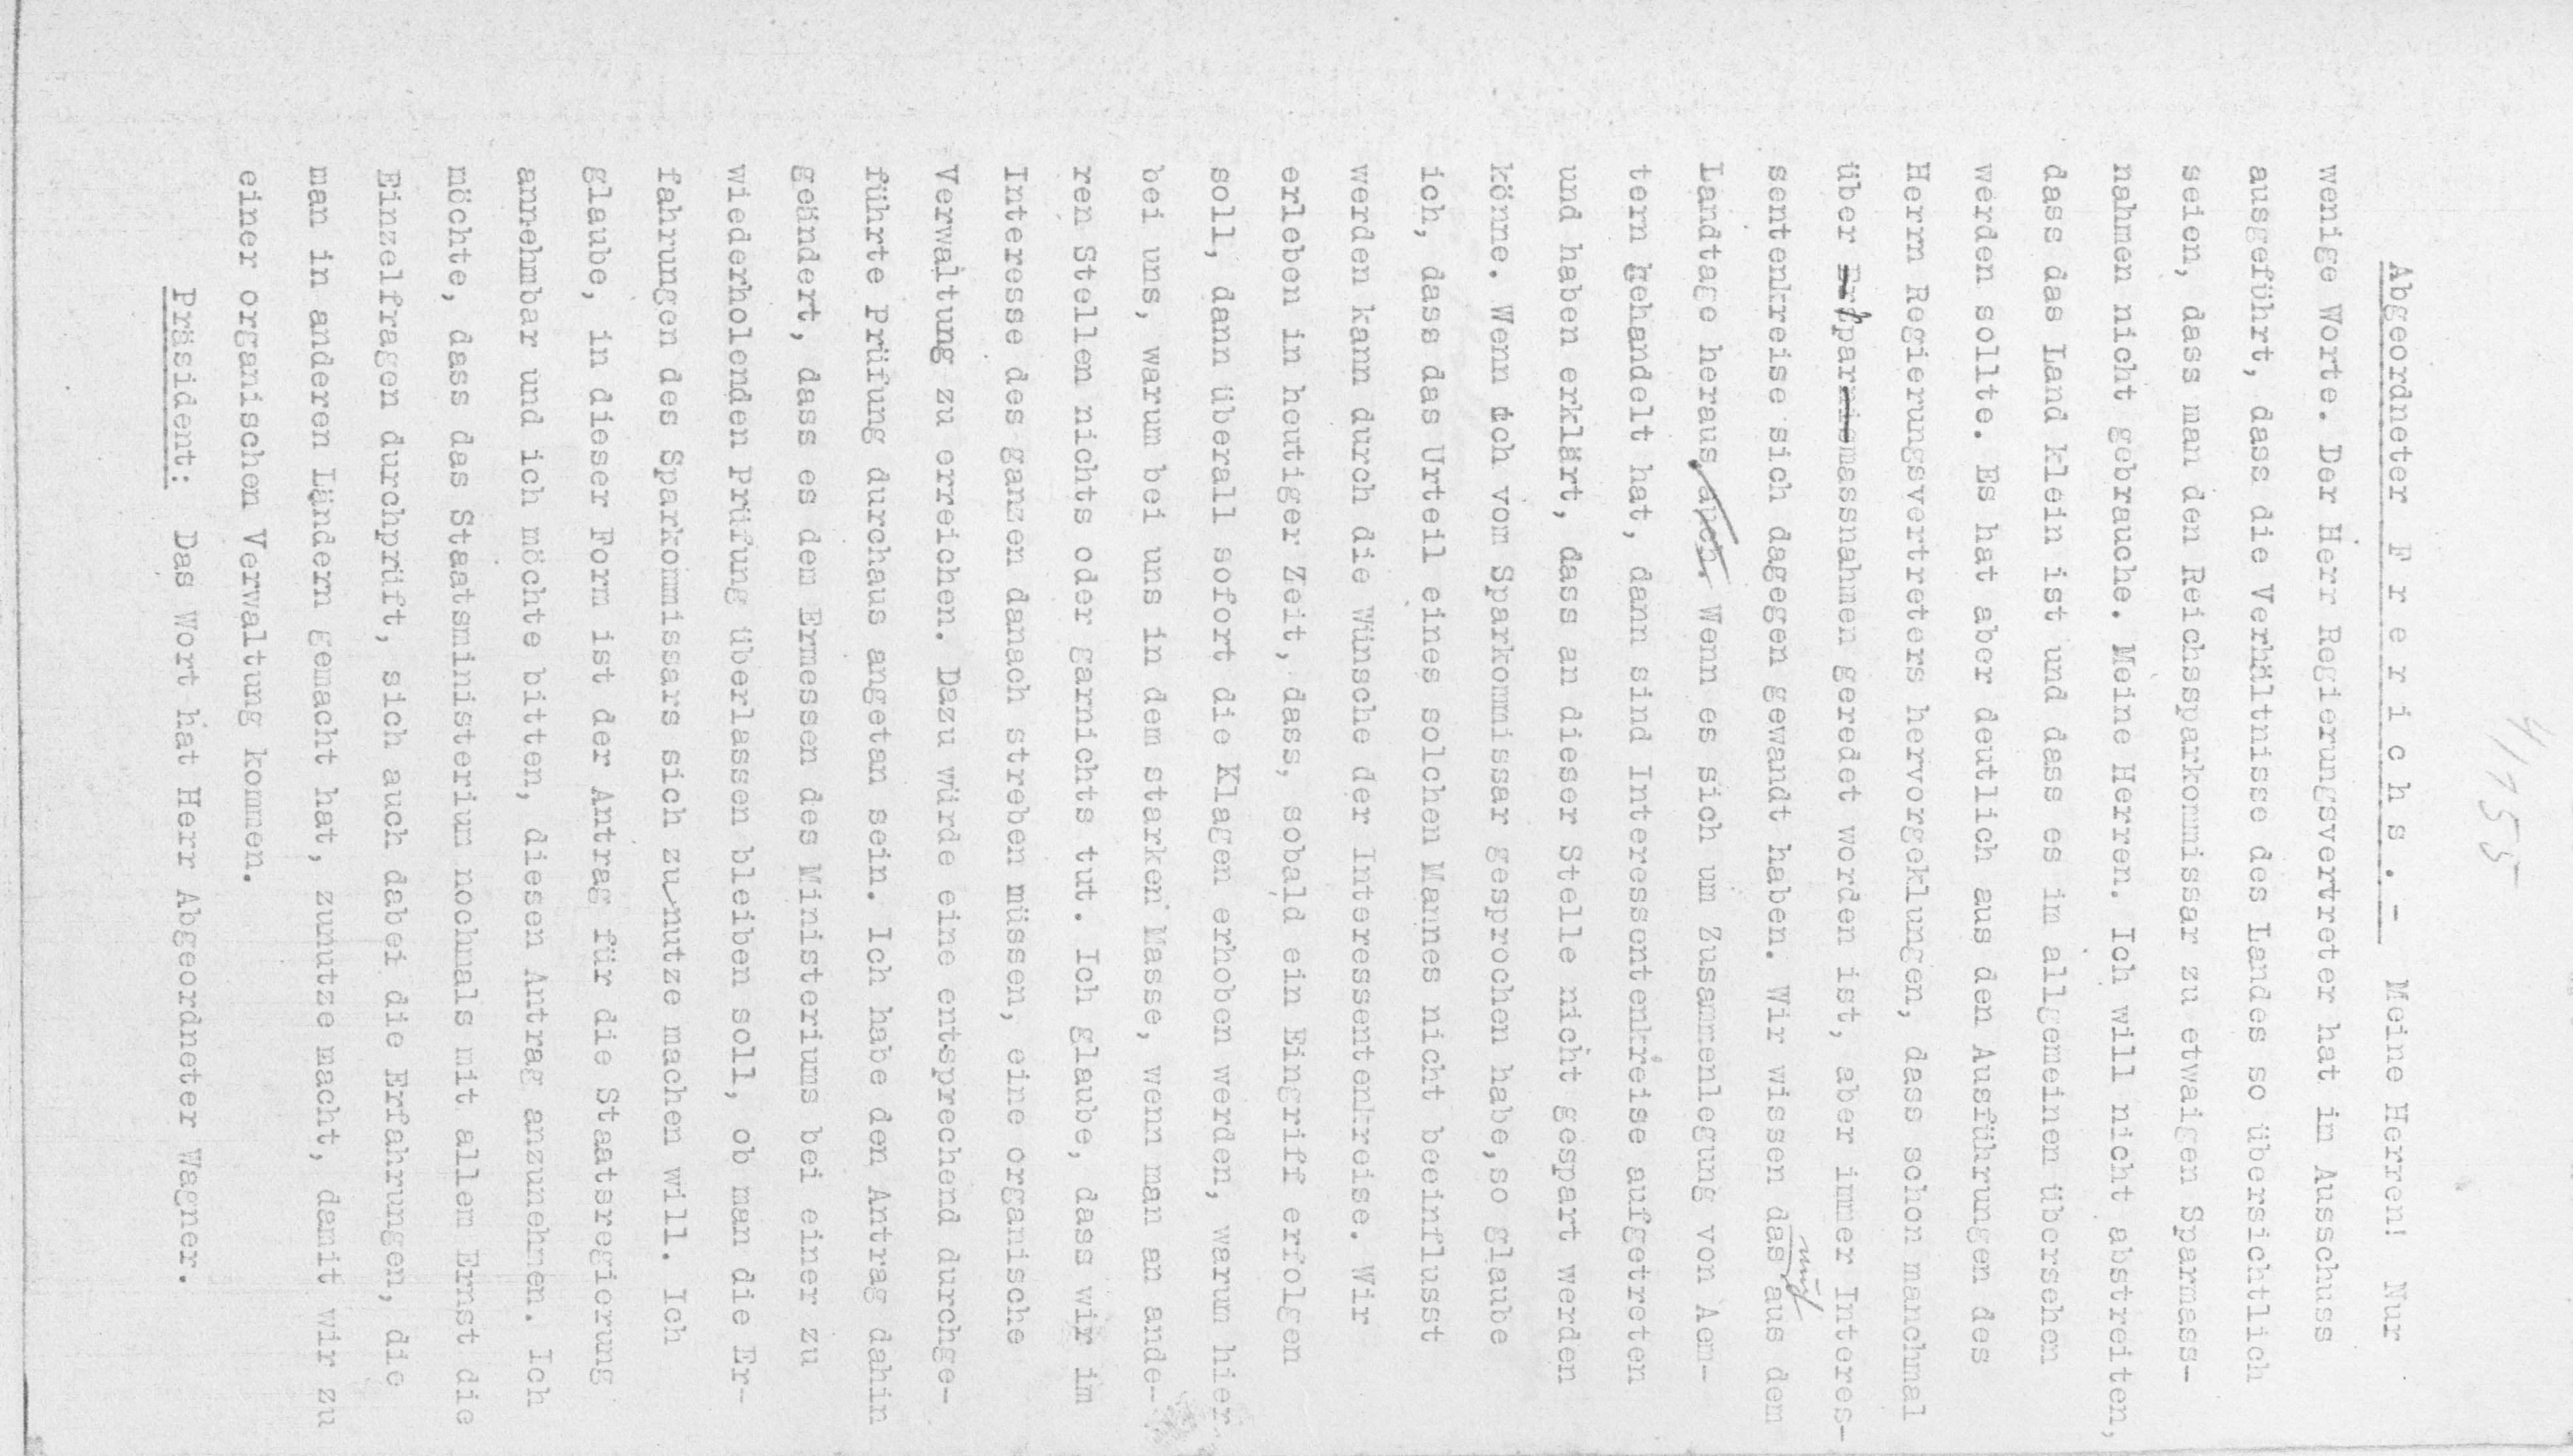 4155
Abgeordneter F r e r i c h s . - Meine Herren! Nur
wenige Worte. Der Herr Regierungsvertreter hat im Ausschuss
ausgeführt, dass die Verhältnisse des Landes so übersichtlich
seien, dass man den Reichssparkommissar zu etwaigen Sparmass-
nahmen nicht gebrauche. Meine Herren. Ich will nicht abstreiten,
dass das Land klein ist und dass es im allgemeinen übersehen
werden sollte. Es hat aber deutlich aus den Ausführungen des
Herrn Regierungsvertreters hervorgeklungen, dass schon manchmal
über Ersparnismassnahmen geredet worden ist, aber immer Interes-
sentenkreise sich dagegen gewandt haben. Wir wissen das auch aus dem
Landtage heraus. auch. Wenn es sich um Zusammenlegung von Aem-
tern gehandelt hat, dann sind Interessentenkreise aufgetreten
und haben erklärt, dass an dieser Stelle nicht gespart werden
könne. Wenn ich vom Sparkommissar gesprochen habe,so glaube
ich, dass das Urteil eines solchen Mannes nicht beeinflusst
werden kann durch die Wünsche der Interessentenkreise. Wir
erleben in heutiger Zeit, dass, sobald ein Eingriff erfolgen
soll, dann überall sofort die Klagen erhoben werden, warum hier
bei uns, warum bei uns in dem starken Masse, wenn man an ande-
ren Stellen nichts oder garnichts tut. Ich glaube, dass wir im
Interesse des ganzen danach streben müssen, eine organische
Verwaltung zu erreichen. Dazu würde eine entsprechend durchge-
führte Prüfung durchaus angetan sein. Ich habe den Antrag dahin
geändert, dass es dem Ermessen des Ministeriums bei einer zu
wiederholenden Prüfung überlassen bleiben soll, ob man die Er-
fahrungen des Sparkommissars sich zu nutze machen will. Ich
glaube, in dieser Form ist der Antrag für die Staatsregierung
annehmbar und ich möchte bitten, diesen Antrag anzunehmen. Ich
möchte, dass das Staatsministerium nochmals mit allem Ernst die
Einzelfragen durchprüft, sich auch dabei die Erfahrungen, die
man in anderen Ländern gemacht hat, zunutze macht, damit wir zu
einer organischen Verwaltung kommen.
Präsident: Das Wort hat Herr Abgeordneter Wagner.